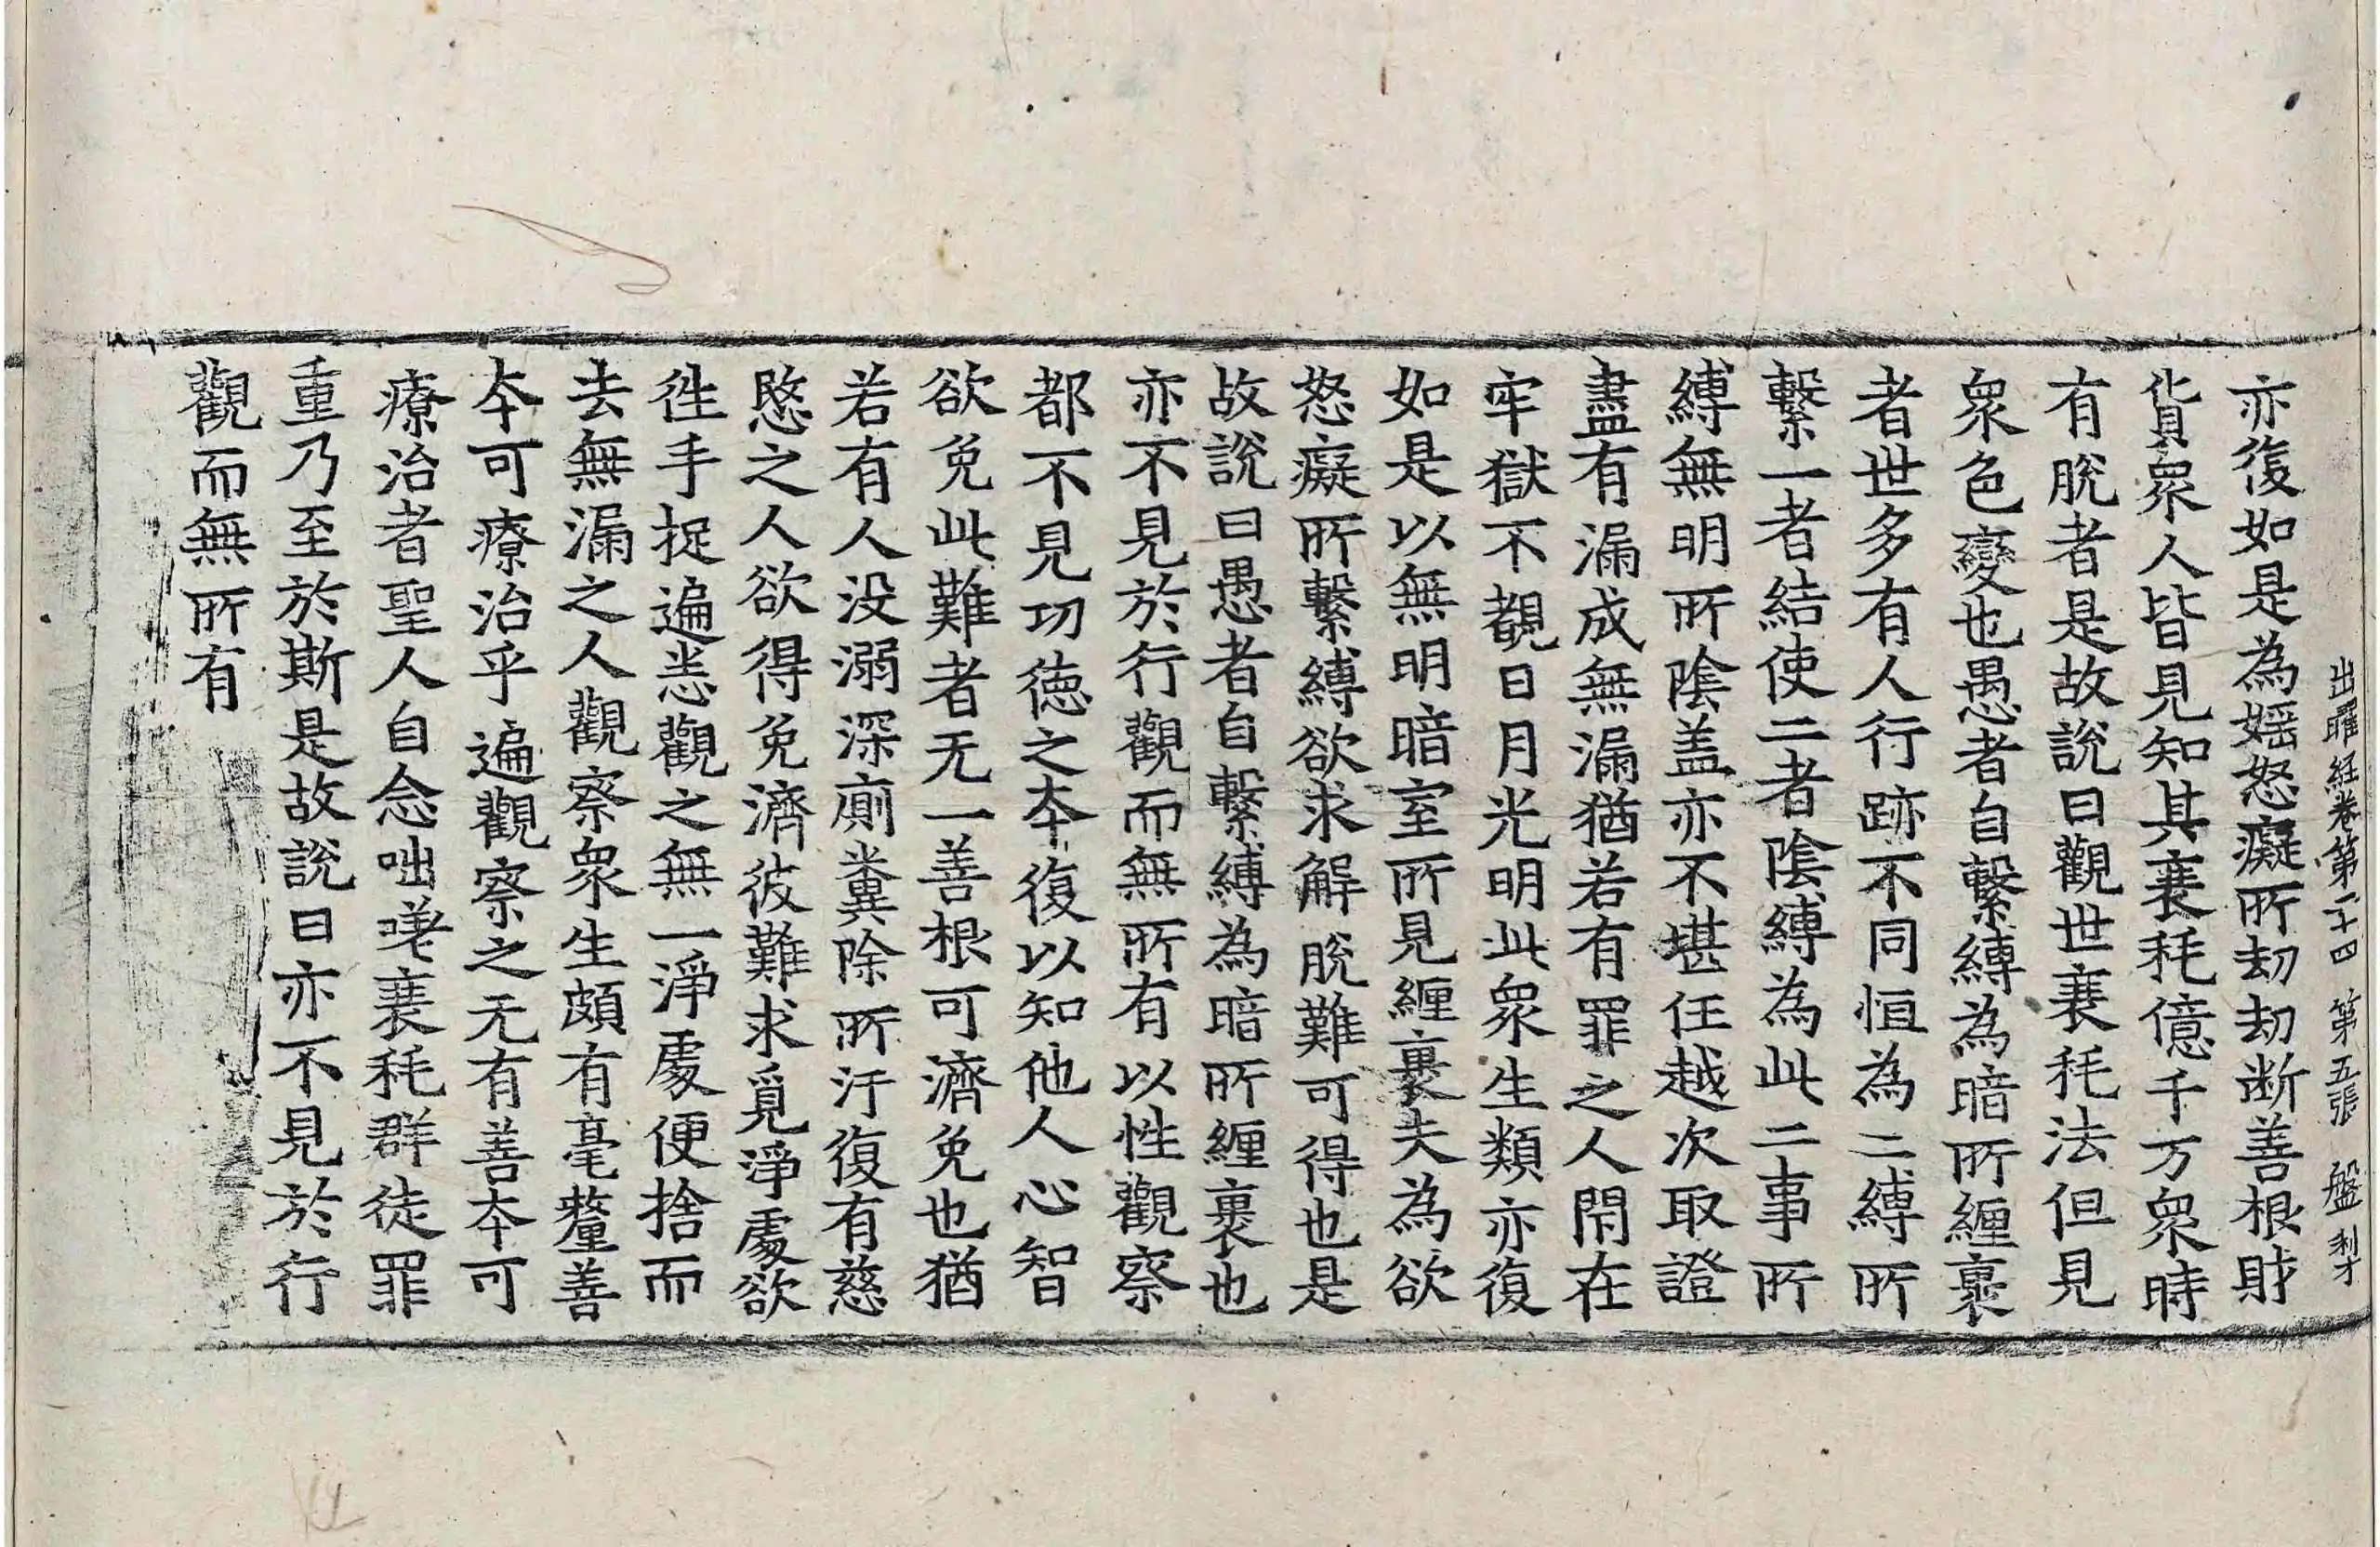 出曜經卷第二十四 第五張 盤 利才
亦復如是為婬怒癡所劫劫断善根財
貨衆人皆見知其衰耗億千万衆時
有脫者是故說曰觀世衰耗法但見
衆色變也愚者自繫縛為暗所纏裹
者世多有人行跡不同恒為二縛所
繫一者結使二者陰縛為此二事所
縛無明所陰盖亦不堪任越次取證
盡有漏成無漏猶若有罪之人閇在
牢獄不覩日月光明此衆生類亦復
如是以無明暗室所見纏裹夫為欲
怒癡所繫縛欲求解脫難可得也是
故說曰愚者自繫縛為暗所纏裹也
亦不見於行觀而無所有以性觀察
都不見功德之本復以知他人心智
欲免此難者无一善根可濟免也猶
若有人没溺深廁糞除所汙復有慈
愍之人欲得免濟彼難求覓淨處欲
往手捉遍悉觀之無一淨處便捨而
去無漏之人觀察衆生頗有毫釐善
本可療治乎遍觀察之无有善本可
療治者聖人自念咄嗟衰耗群徒罪
重乃至於斯是故說曰亦不見於行
觀而無所有